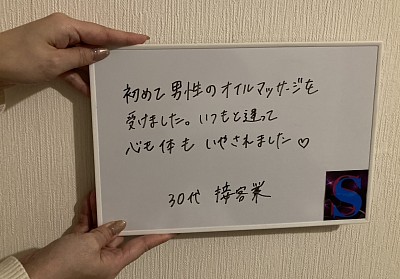 初めて男性のオイルマッサージを
受けました。いつもと違って
心も体もいやされました♡
30代 接客業
S